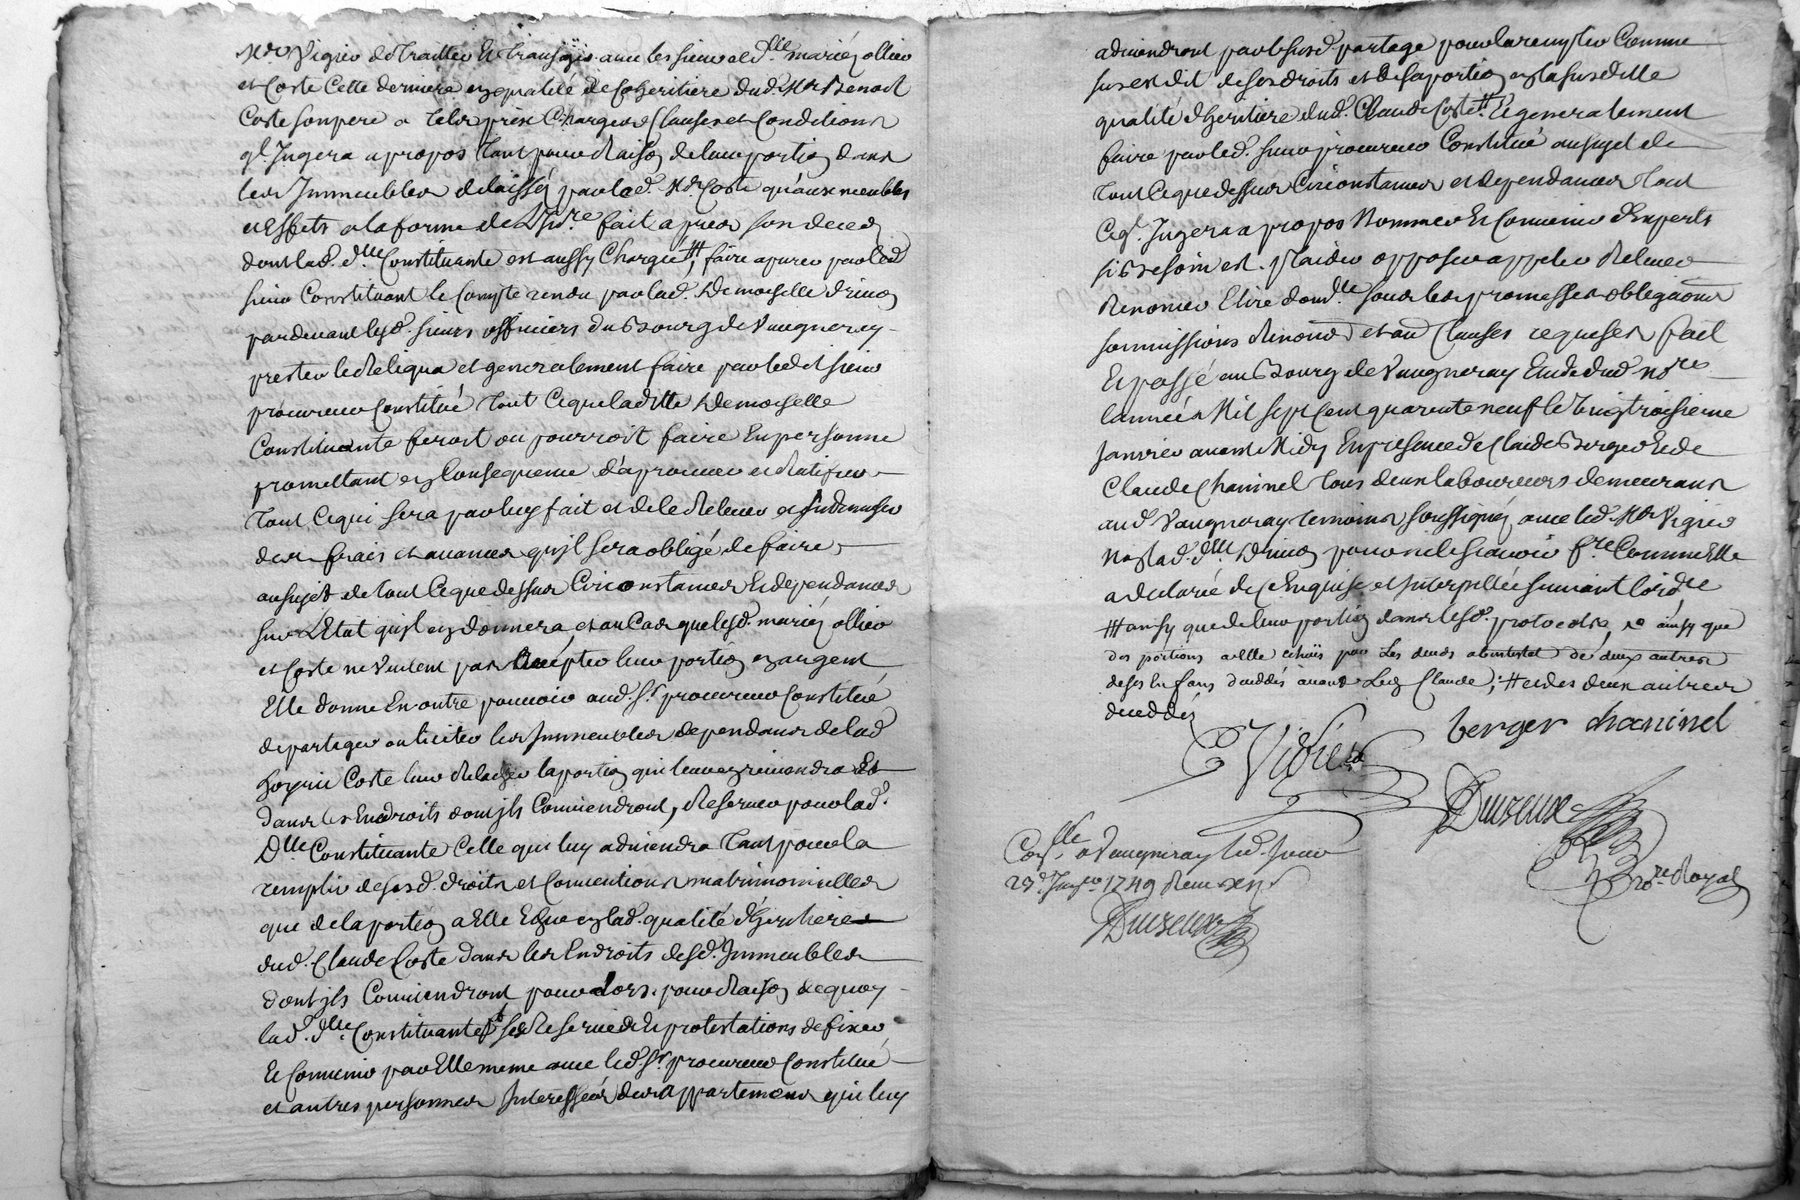 Mr Vigier de traitter et transigis avec les sieur et dlle mariés ollier
et Coste Cette derniere en qualité de Coheritiere dud. Mr Benoit
Coste son pere a telle prix Charges Clauses et Conditions
ql. Jugera a propos tant pour Raison de leur portion dans
les Immeubles delaissés par led. Mr Coste qu'aux meubles
et Effets a la forme de fait apres son deced
dont lad. dlle Constituante est aussy Chargée faire apurer par led
sieur Constituant le Compte rendu par lad. Demoiselle
pardevant lesd. sieurs officiers du Bourg de Vaugneray
prester le Reliqua et generalement faire par ledit sieur
procureur Constitué tout Ceque laditte Demoiselle
Constituante feroit ou pourroit faire En personne
promettant en Consequence d'aprouver et Ratifier
tout Cequi sera par luy fait et de le Relever et Indemniser
des frais et avances qu'jl sera obligé de faire
au sujet de tout Ceque dessus Circonstances Et dependances
sur L'Etat qu'jl en donnera et au Cas que lesd. mariés ollier
et Coste ne veulent pas accépter leur portion en argent
Elle donne En outre pouvoir aud. Sr. procureur Constitué
de partager ou liciter les Immeubles dependans de lad
hoyrie Coste leur Relacher la portion qui leur en reviendra Et
dans les Endroits dont jls Conviendront, Reserver pour lad.
Dlle Constituante Celle qui luy adviendra tant pour la
remplir de sesd. droits et Conventions matrimonielles
que de la portion a Elle Echue en lad. qualité d'heritiere
dud. Claude Coste dans les Endroits desd. Immeubles
dont jls Conviendront pour Lors. pour Raison de quoy
lad. dlle Constituante se Reserve de Et protestations de fixer
Et Convenir par Elle meme avec led. Sr. procureur Constitué
et autres personnes Interessées des appartemens qui luy
adviendront par led. partage pour la remplir Comme
sus est dit de ses droits et de sa portion en sa susditte
qualité d'heritiere dud. Claude Coste # Et generalement
faire par led. sieur procureur Constitué au sujet de
tout Ceque dessus Circonstances et dependances tout
Ceql. Jugera a propos Nommer Et Convenir d'Experts
si Besoin est. plaider opposer appeller Relever
Renoncer Elire domlle sous les promesses obligaons
soumissions Renonons et aus Clauses requises fait
Et passé au Bourg de Vaugneray Etude dud nore
lannée Mil sept Cent quarante neuf le vingt troisieme
Janvier avant Midy En presence de Claude Berger Et de
Claude Chaninel tous deux laboureurs demeurans
aud Vaugneray temoins soussignés avec led. Mr Vigier
Non lad. dlle pour ne le scavoir fre Comme Elle
a declaré de Ce Enquise et Interpellée suivant lordce
# ainsy que de leur portion dans lesd. protocolle, et ainsy que
des portions a Elle echuës par Les deceds abintestat de deux autres
de ses Enfans decedés avant Led Claude; # et des deux autres
decedés
Vigier
berger chaninel
Duzeux
nore Royal
Conlle a Vaugneray led. Jour
23e Janvier 1749 Reçu six s
Duzeux